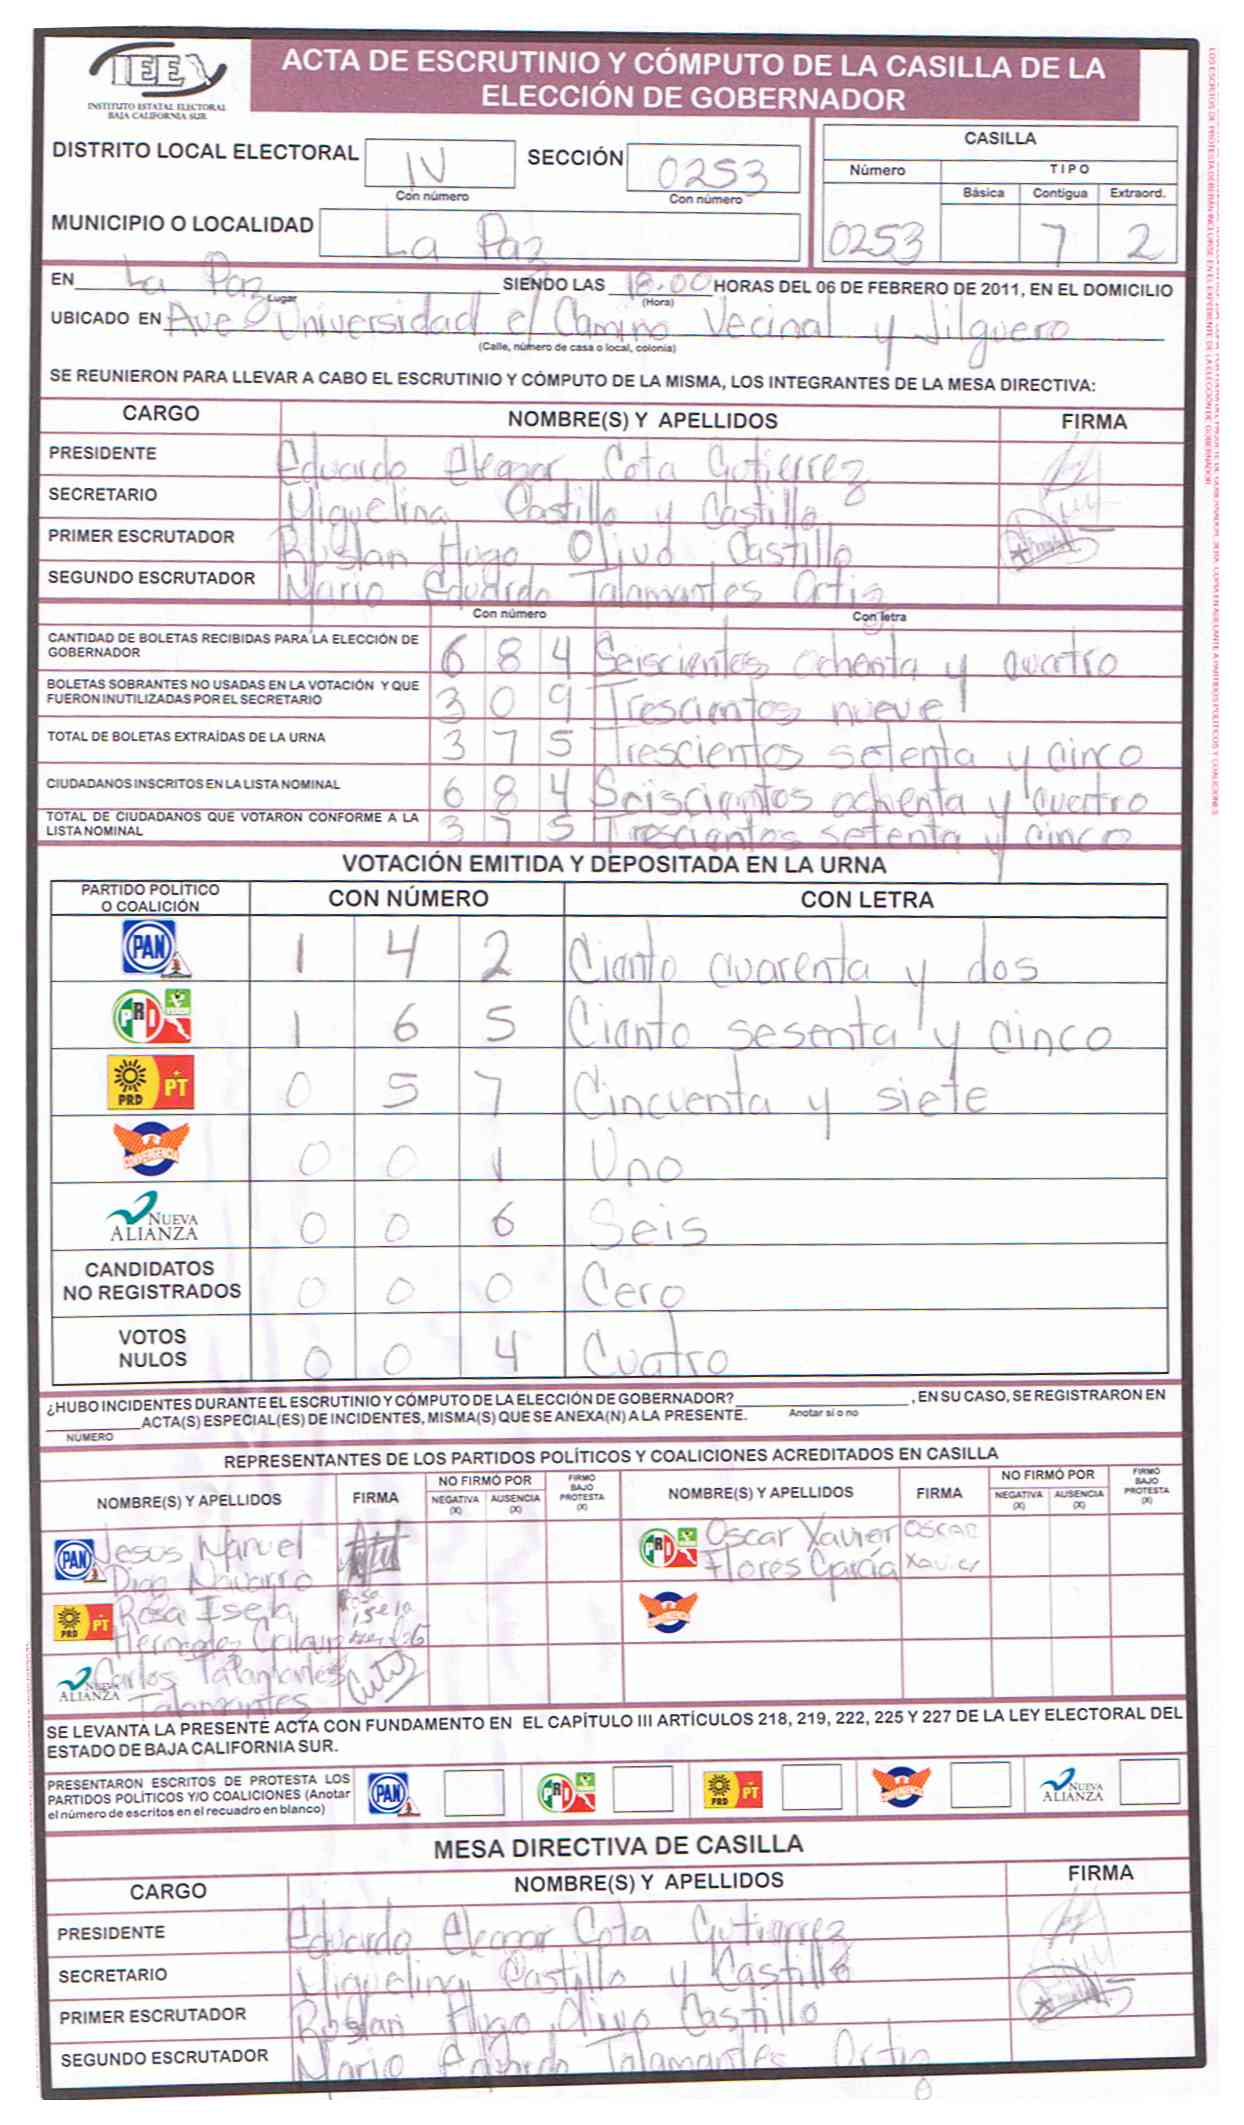 IEE
INSTITUTO ESTATAL ELECTORAL
BAJA CALIFORNIA SUR
ACTA DE ESCRUTINIO Y CÓMPUTO DE LA CASILLA DE LA
ELECCIÓN DE GOBERNADOR
DISTRITO LOCAL ELECTORAL IV SECCIÓN 0253
Con número Con número
MUNICIPIO O LOCALIDAD La Paz
CASILLA
Número TIPO
Básica Contigua Extraord.
0253 7 2
EN La Paz SIENDO LAS 18:00 HORAS DEL 06 DE FEBRERO DE 2011, EN EL DOMICILIO
Lugar (Hora)
UBICADO EN Ave Universidad e/ Camino Vecinal y Jilguero
(Calle, número de casa o local, colonia)
SE REUNIERON PARA LLEVAR A CABO EL ESCRUTINIO Y CÓMPUTO DE LA MISMA, LOS INTEGRANTES DE LA MESA DIRECTIVA:
CARGO NOMBRE(S) Y APELLIDOS FIRMA
PRESIDENTE Eduardo Eleazar Cota Gutierrez
SECRETARIO Miguelina Castillo y Castillo
PRIMER ESCRUTADOR Ruslan Hugo Castillo
SEGUNDO ESCRUTADOR Mario Eduardo Talamantes Ortiz
Con número Con letra
CANTIDAD DE BOLETAS RECIBIDAS PARA LA ELECCIÓN DE
GOBERNADOR 6 8 4 Seiscientos ochenta y cuatro
BOLETAS SOBRANTES NO USADAS EN LA VOTACIÓN Y QUE
FUERON INUTILIZADAS POR EL SECRETARIO 3 0 9 Trescientos nueve
TOTAL DE BOLETAS EXTRAÍDAS DE LA URNA 3 7 5 Trescientos setenta y cinco
CIUDADANOS INSCRITOS EN LA LISTA NOMINAL 6 8 4 Seiscientos ochenta y cuatro
TOTAL DE CIUDADANOS QUE VOTARON CONFORME A LA
LISTA NOMINAL 3 7 5 Trescientos setenta y cinco
VOTACIÓN EMITIDA Y DEPOSITADA EN LA URNA
PARTIDO POLÍTICO
O COALICIÓN CON NÚMERO CON LETRA
PAN 1 4 2 Ciento cuarenta y dos
PRI 1 6 5 Ciento sesenta y cinco
PRD PT 0 5 7 Cincuenta y siete
CONVERGENCIA 0 0 1 Uno
NUEVA
ALIANZA 0 0 6 Seis
CANDIDATOS
NO REGISTRADOS 0 0 0 Cero
VOTOS
NULOS 0 0 4 Cuatro
¿HUBO INCIDENTES DURANTE EL ESCRUTINIO Y CÓMPUTO DE LA ELECCIÓN DE GOBERNADOR? , EN SU CASO, SE REGISTRARON EN
Anotar sí o no
ACTA(S) ESPECIAL(ES) DE INCIDENTES, MISMA(S) QUE SE ANEXA(N) A LA PRESENTE.
NÚMERO
REPRESENTANTES DE LOS PARTIDOS POLÍTICOS Y COALICIONES ACREDITADOS EN CASILLA
NOMBRE(S) Y APELLIDOS FIRMA NO FIRMÓ POR NEGATIVA (X) AUSENCIA (X) FIRMÓ BAJO PROTESTA (X) NOMBRE(S) Y APELLIDOS FIRMA NO FIRMÓ POR NEGATIVA (X) AUSENCIA (X) FIRMÓ BAJO PROTESTA (X)
PAN Jesus Manuel PRI Oscar Xavier Oscar
Diaz Navarro Flores García Xavier
PRD PT Rosa Isela Rosa Isela CONVERGENCIA
Hernandez
NUEVA ALIANZA Carlos Talamantes
Talamantes
SE LEVANTA LA PRESENTE ACTA CON FUNDAMENTO EN EL CAPÍTULO III ARTÍCULOS 218, 219, 222, 225 Y 227 DE LA LEY ELECTORAL DEL
ESTADO DE BAJA CALIFORNIA SUR.
PRESENTARON ESCRITOS DE PROTESTA LOS
PARTIDOS POLÍTICOS Y/O COALICIONES (Anotar
el número de escritos en el recuadro en blanco)
PAN PRI PRD PT CONVERGENCIA NUEVA ALIANZA
MESA DIRECTIVA DE CASILLA
CARGO NOMBRE(S) Y APELLIDOS FIRMA
PRESIDENTE Eduardo Eleazar Cota Gutierrez
SECRETARIO Miguelina Castillo y Castillo
PRIMER ESCRUTADOR Ruslan Hugo Castillo
SEGUNDO ESCRUTADOR Mario Eduardo Talamantes Ortiz